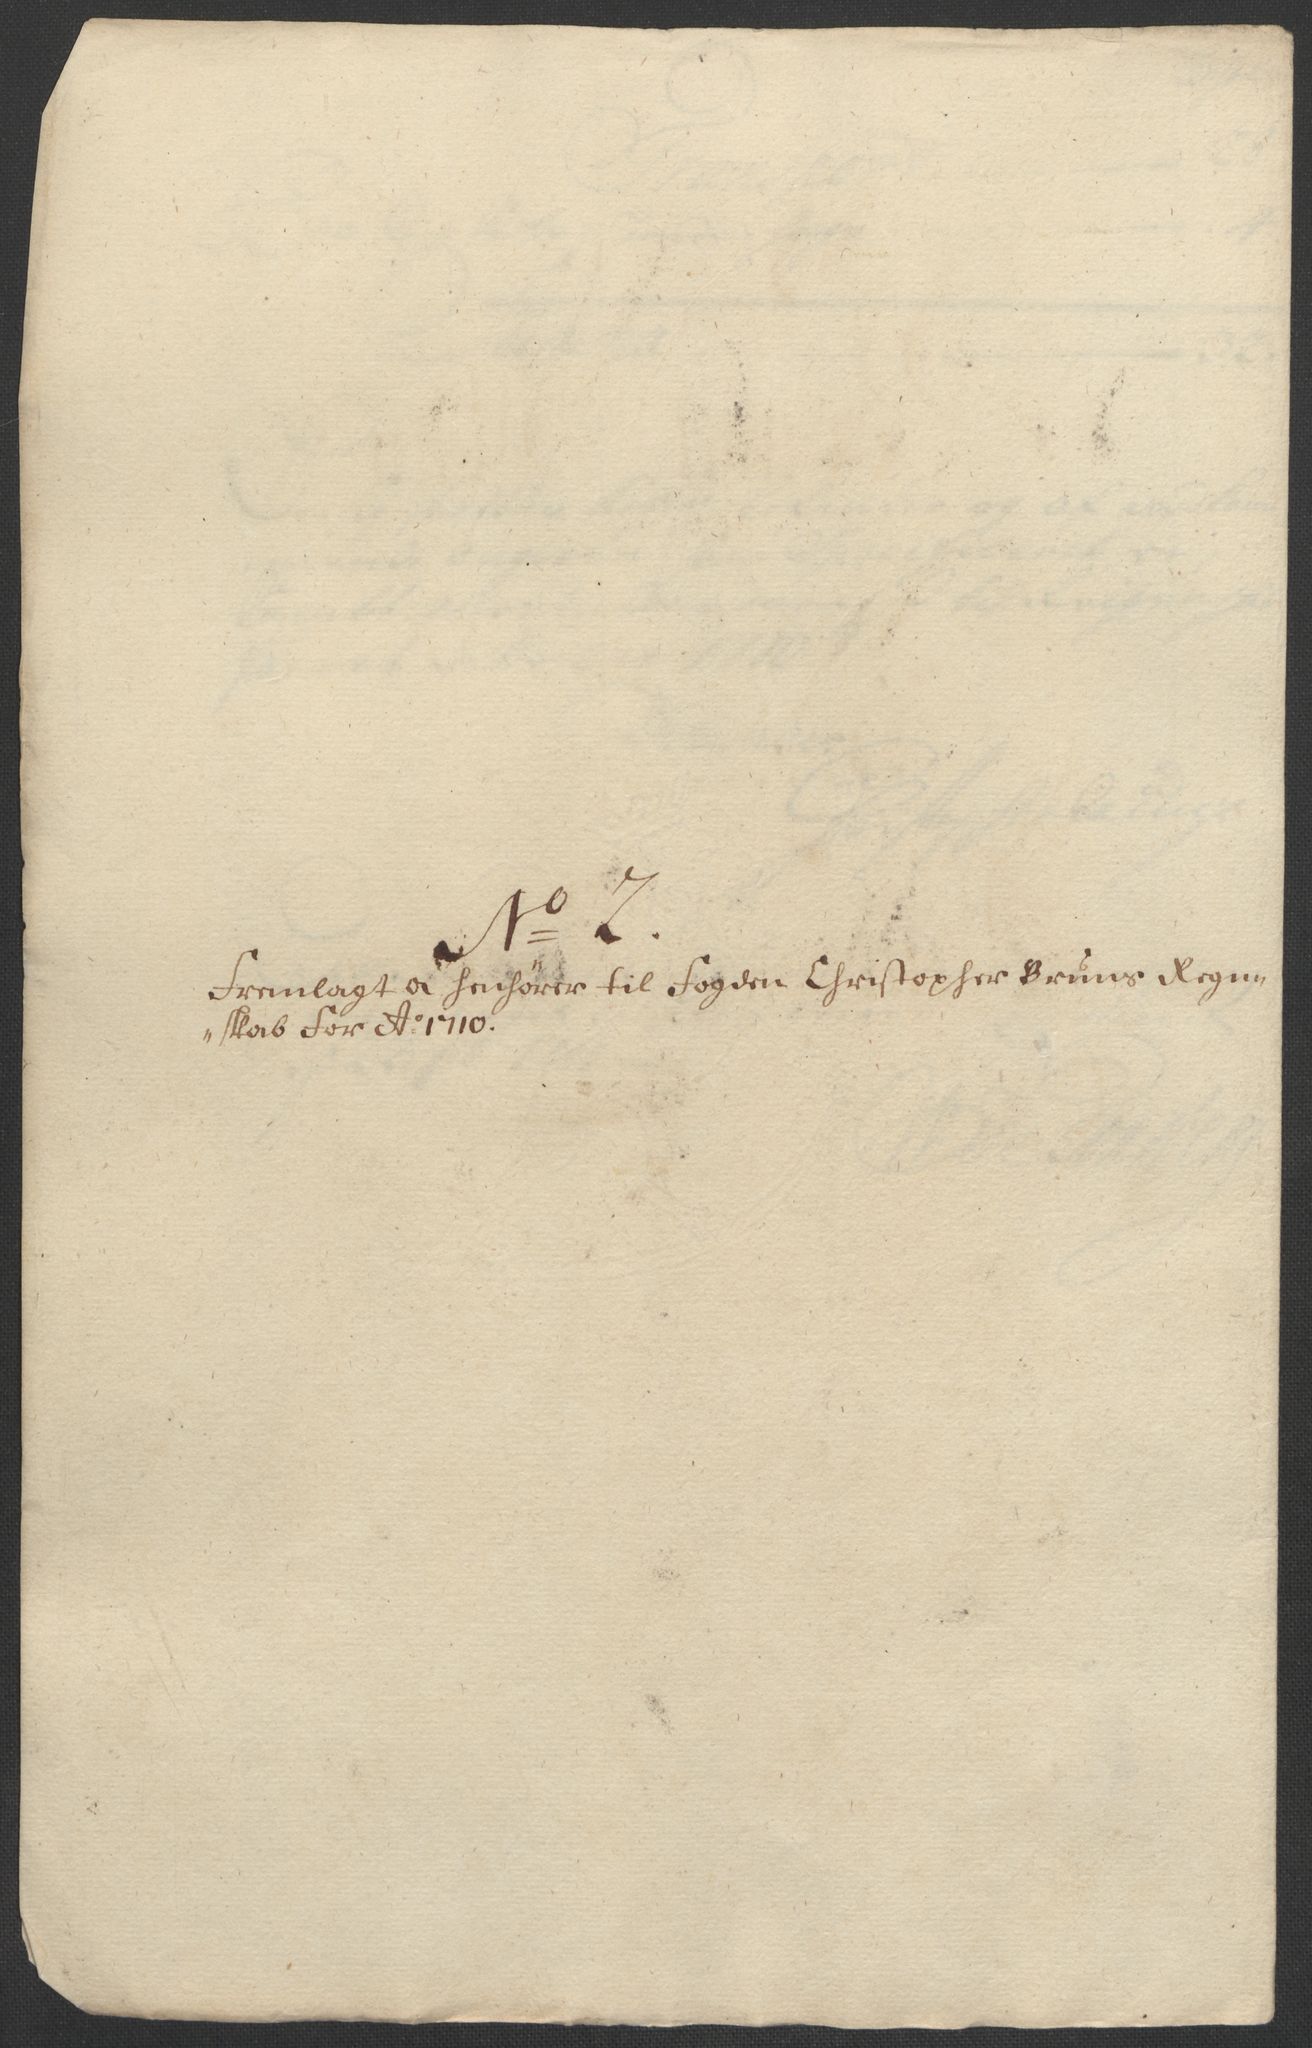 No 2.
Fremlagt oc henhører til Fogden Christopher Bruns Regn=
"skab For Ao 1710.